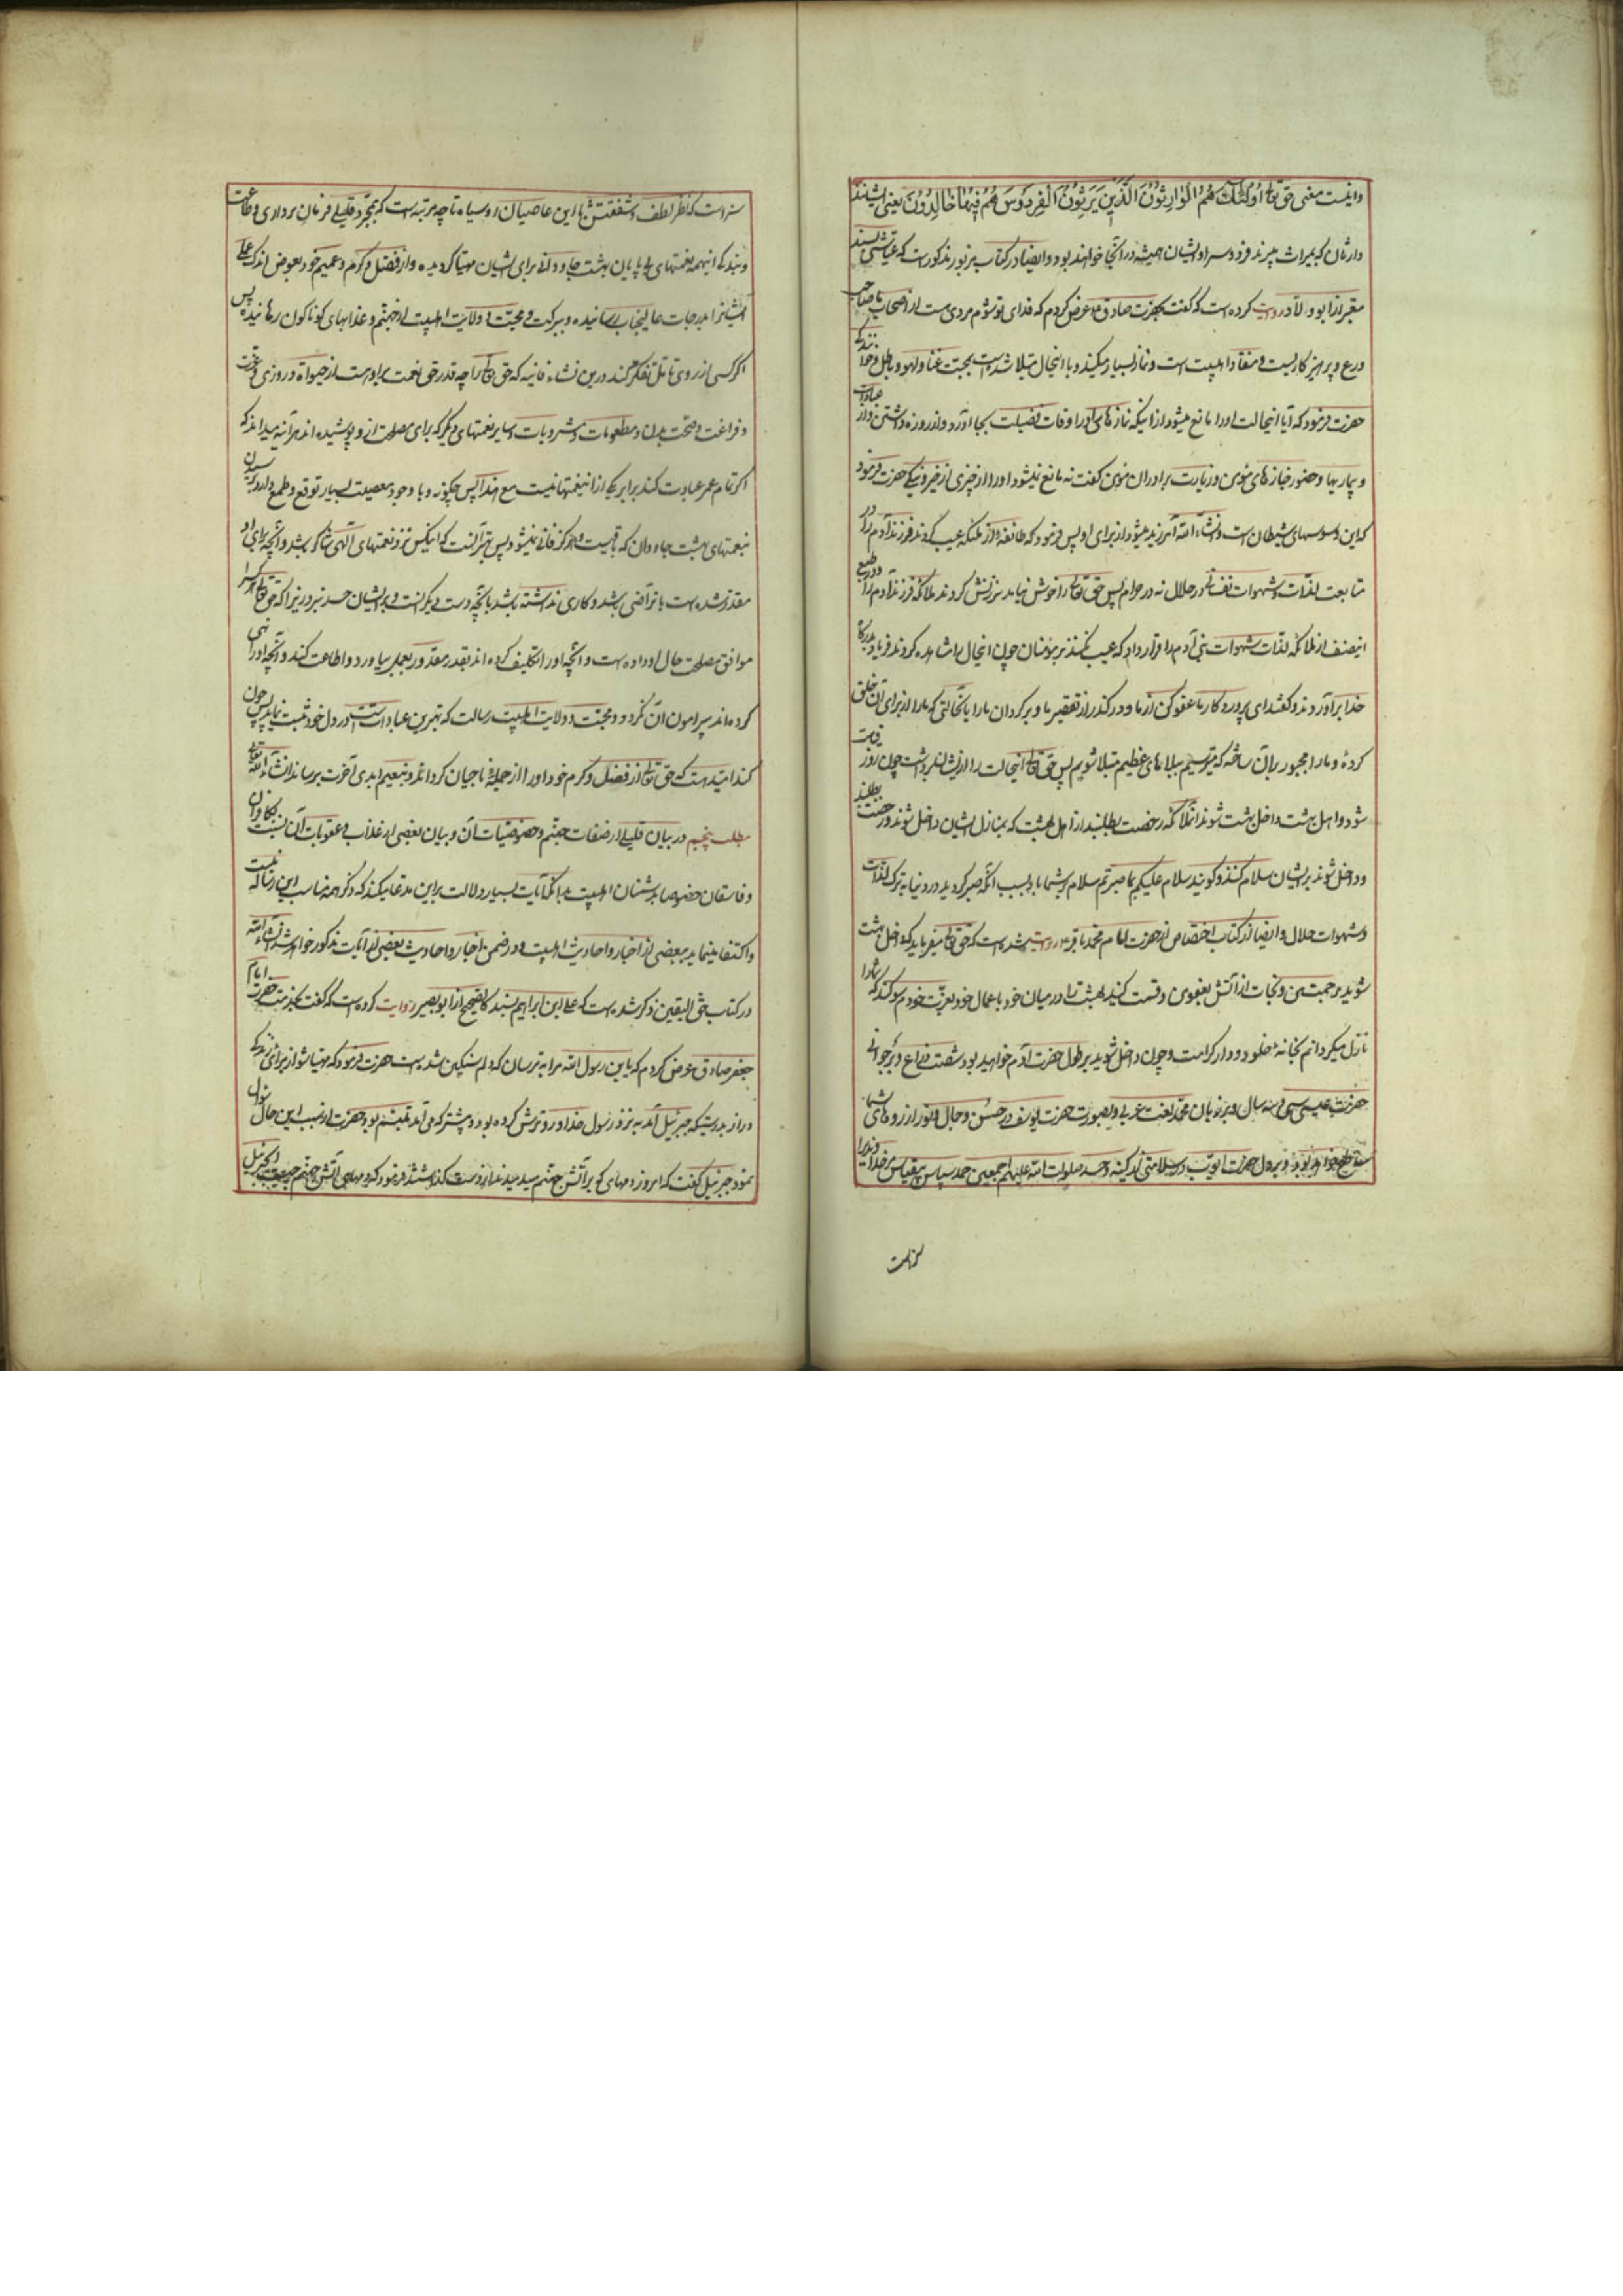 واینست معنی حق تع اُولٰئِكَ هُمُ الْوٰارِثُونَ الَّذِينَ يَرِثُونَ الْفِرْدَوْسَ هُمْ فِيهٰا خٰالِدُونَ یعنی ایشانند
وارثان که بمیراث میبرند فردوس را و ایشان همیشه در آنجا خواهند بود و ایضا در کتاب مزبور مذکور است که عیاشی بسند
معتبر از ابو ولاد روایت کرده است که گفت بحضرت صادق ع عرض کردم که فدای تو شوم مردی هست از اصحاب ما صاحب
ورع و پرهیزکاریست و منقاد اهلبیت است و نماز بسیار میکند و با اینحال مبتلا شده است بمحبت غنا و لهو و باطل
حضرت فرمود که آیا اینحالت او را مانع میشود از اینکه نمازهای را در اوقات فضیلت بجا آورد و از روزه داشتن و از عیادت
و بیماریها و حضور جنازهای مؤمن و زیارت برادران مؤمن گفت نه مانع نمیشود او را از چیزی از خیر و نیکی حضرت فرمود
که این وسوسهای شیطان است و انشاء الله آمرزیده میشود از برای او پس فرمود که طائفهٔ از ملئکه عیب کردند فرزند آدم را در
متابعت لذات و شهوات نفسانی در حلال نه در حرام پس حق تع را خوش نیامد سرزنش کردند ملائکه فرزند آدم را
اینصنف از ملائکه لذات شهوات بنی آدم را قرار داد که عیب نکنند بر مؤمنان چون اینحال را مشاهده کردند فریاد بدرگاه
خدا برآوردند و گفتند ای پروردگار ما عفو کن از ما و درگذر از تقصیر ما و برگردان ما را بآنحالتی که ما را از برای آن خلق
کردهٔ و ما را مجبور بر آن ساختهٔ که میترسیم ببلاهای عظیم مبتلا شویم پس حق تع اینحالت را از ایشان برداشت چون روز قیامت
شود و اهل بهشت داخل بهشت شوند آنملائکه رخصت بطلبند از اهل بهشت که بمنازل ایشان داخل شوند رخصت بطلبند
و داخل شوند بر ایشان سلام کنند و گویند سلام علیکم بما صبرتم سلام بر شما باد بسبب آنکه صبر کردید در دنیا بر ترک لذات
و شهوات حلال و ایضا از کتاب اختصاص از حضرت امام محمد باقر ع روایت شده است که حق تع میفرماید که داخل بهشت
شوید برحمت من و نجات از آتش بعفو من و قسمت کنید بهشت را در میان خود باعمال خود بعزت خودم سوگند که شما را
نازل میگردانم بخانهٔ خلود و دار کرامت و چون داخل شوید بر طول حضرت آدم خواهید بود شصت ذراع و بر جوانی
حضرت عیسی سی و سه سال و بر زبان محمد لغت عربی و بصورت حضرت یوسف در حسن و جمال و نور از روهای شما
ساطع خواهد بود و بر دل حضرت ایوب در سلامتی از کینه و حسد صلوات الله علیهم اجمعین حمد سپاس بیقیاس مر خداوندیرا
سزاست
سزاست که نظر لطف و شفقتش با این عاصیان روسیاه تا چه مرتبه است که بمجرد قلیلی فرمان برداری و طاعت
و بندگی اینهمه نعمتهای بی پایان بهشت جاودانی برای ایشان مهیا گردیده و از فضل و کرم و عمیم خود بعوض اندک عملی
ایشانرا بدرجات عالیجناب رسانیده و ببرکت و محبت و ولایت اهلبیت از جهنم و عذابهای گوناگون رهانیده پس
اگر کسی از روی تامل تفکر کند درین نشاء فانیه که حق تع را چه قدر حق نعمت بر او است از حیوة و روزی و عزت
و فراغت و صحت بدن و مطعومات و مشروبات و سایر نعمتهای دیگر که برای مصلحت از و پوشیده اند هر آینه میداند که
اگر تمام عمر عبادت کند برابر یکی از اینعمتها نیست مع هذا پس چگونه و با وجود معصیت بسیار توقع و طمع دارد رسیدن
نعمتهای بهشت جاودان که باقیست و هرگز فانی نمیشود پس بهتر آنست که اینکس نزد نعمتهای آلهی شاکر باشد و آنچه برای او
مقدر شده است بآن راضی باشد و کاری نداشته باشد بآنچه دست دیگرانست و بر ایشان حسد نبرد زیرا که حق تع هر کس را
موافق مصلحت حال او داده است و آنچه او را تکلیف کرده اند بقدر مقدور بعمل بیاورد و اطاعت کند و آنچه او را نهی
کرده اند پیرامون آن نگردد و محبت و ولایت اهلبیت رسالت که بهترین عبادات است در دل خود ثبت نماید پس چون
کند امید است که حق تع از فضل و کرم خود او را از جملهٔ ناجیان گرداند و بنعیم ابدی آخرت برساند انشاء الله تعالی
مطلب پنجم در بیان قلیلی از صفات جهنم و خصوصیات آن و بیان بعضی از عذاب و عقوبات آن نسبت بکافران
و فاسقان خصوصا بدشمنان اهلبیت بدانکه آیات بسیار دلالت بر این مدعا میکند که ذکر همه مناسب این رساله نیست
و اکتفا مینماید ببعضی از اخبار و احادیث اهلبیت و در ضمن اخبار و احادیث بعضی از آیات مذکور خواهد شد انشاء الله
در کتاب حق الیقین ذکر شده است که علی ابن ابراهیم بسند کالصحیح از ابو بصیر روایت کرده است که گفت بخدمت حضرت امام
جعفر صادق ع عرض کردم که یا بن رسول الله مرا بترسان که دلم سنگین شده است حضرت فرمود که مهیا شو از برای زندگی
دراز بدرستیکه جبرئیل آمد به نزد رسول خدا و رو ترش کرده بود و پیشتر که می آمد متبسم بود حضرت از سبب این حال سؤال
نمود جبرئیل گفت که امروز دمهای که بر آتش جهنم میدمیدند از دست گذاشتند فرمود که دمهای آتش جهنم چیست ای جبرئیل